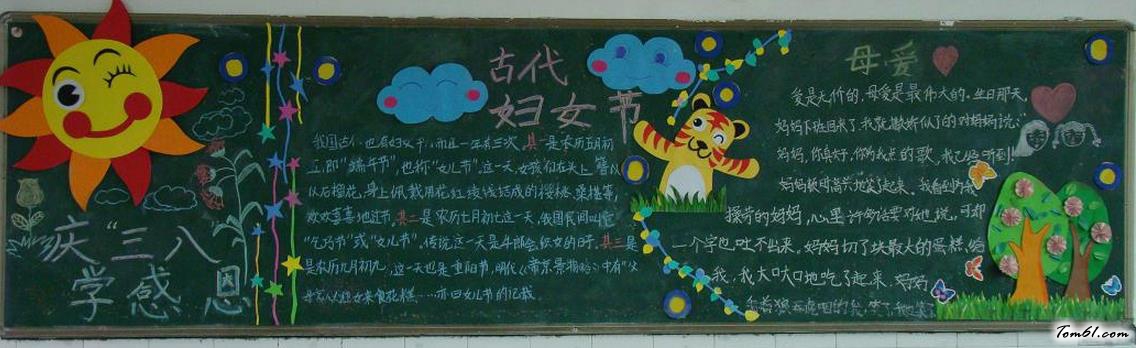 庆“三八”
学感恩
古代
妇女节
我国古人也有妇女节，而且一年有三次，其一是农历五月初
五，即“端午节”也称“女儿节”这一天，女孩们在头上簪以
以石榴花，身上佩戴用花红绫线结成的樱桃、桑椹等，
欢欢喜喜地过节。其二是农历七月初七这一天，我国民间叫它
“乞巧节”或“女儿节”，传说这一天是牛郎会织女的时，其三是
是农历九月初九，这一天也是重阳节，明代《帝京景物略》中有“父
母家必迎女来食花糕……亦曰女儿节的记载。
母爱
爱是无价的，母爱是最伟大的。生日那天，
妈妈下班回来了，我撒娇似的对妈妈说：
妈妈，你真好，你为我点的歌，我已经听到！
妈妈顿时高兴地笑了起来，我看到为我
操劳的妈妈，心里许多话要对她说，可却
一个字也吐不出来。妈妈切了块最大的蛋糕给
我，我大口大口地吃了起来，妈妈
看着狼吞虎咽的我，笑了
Tom61.com